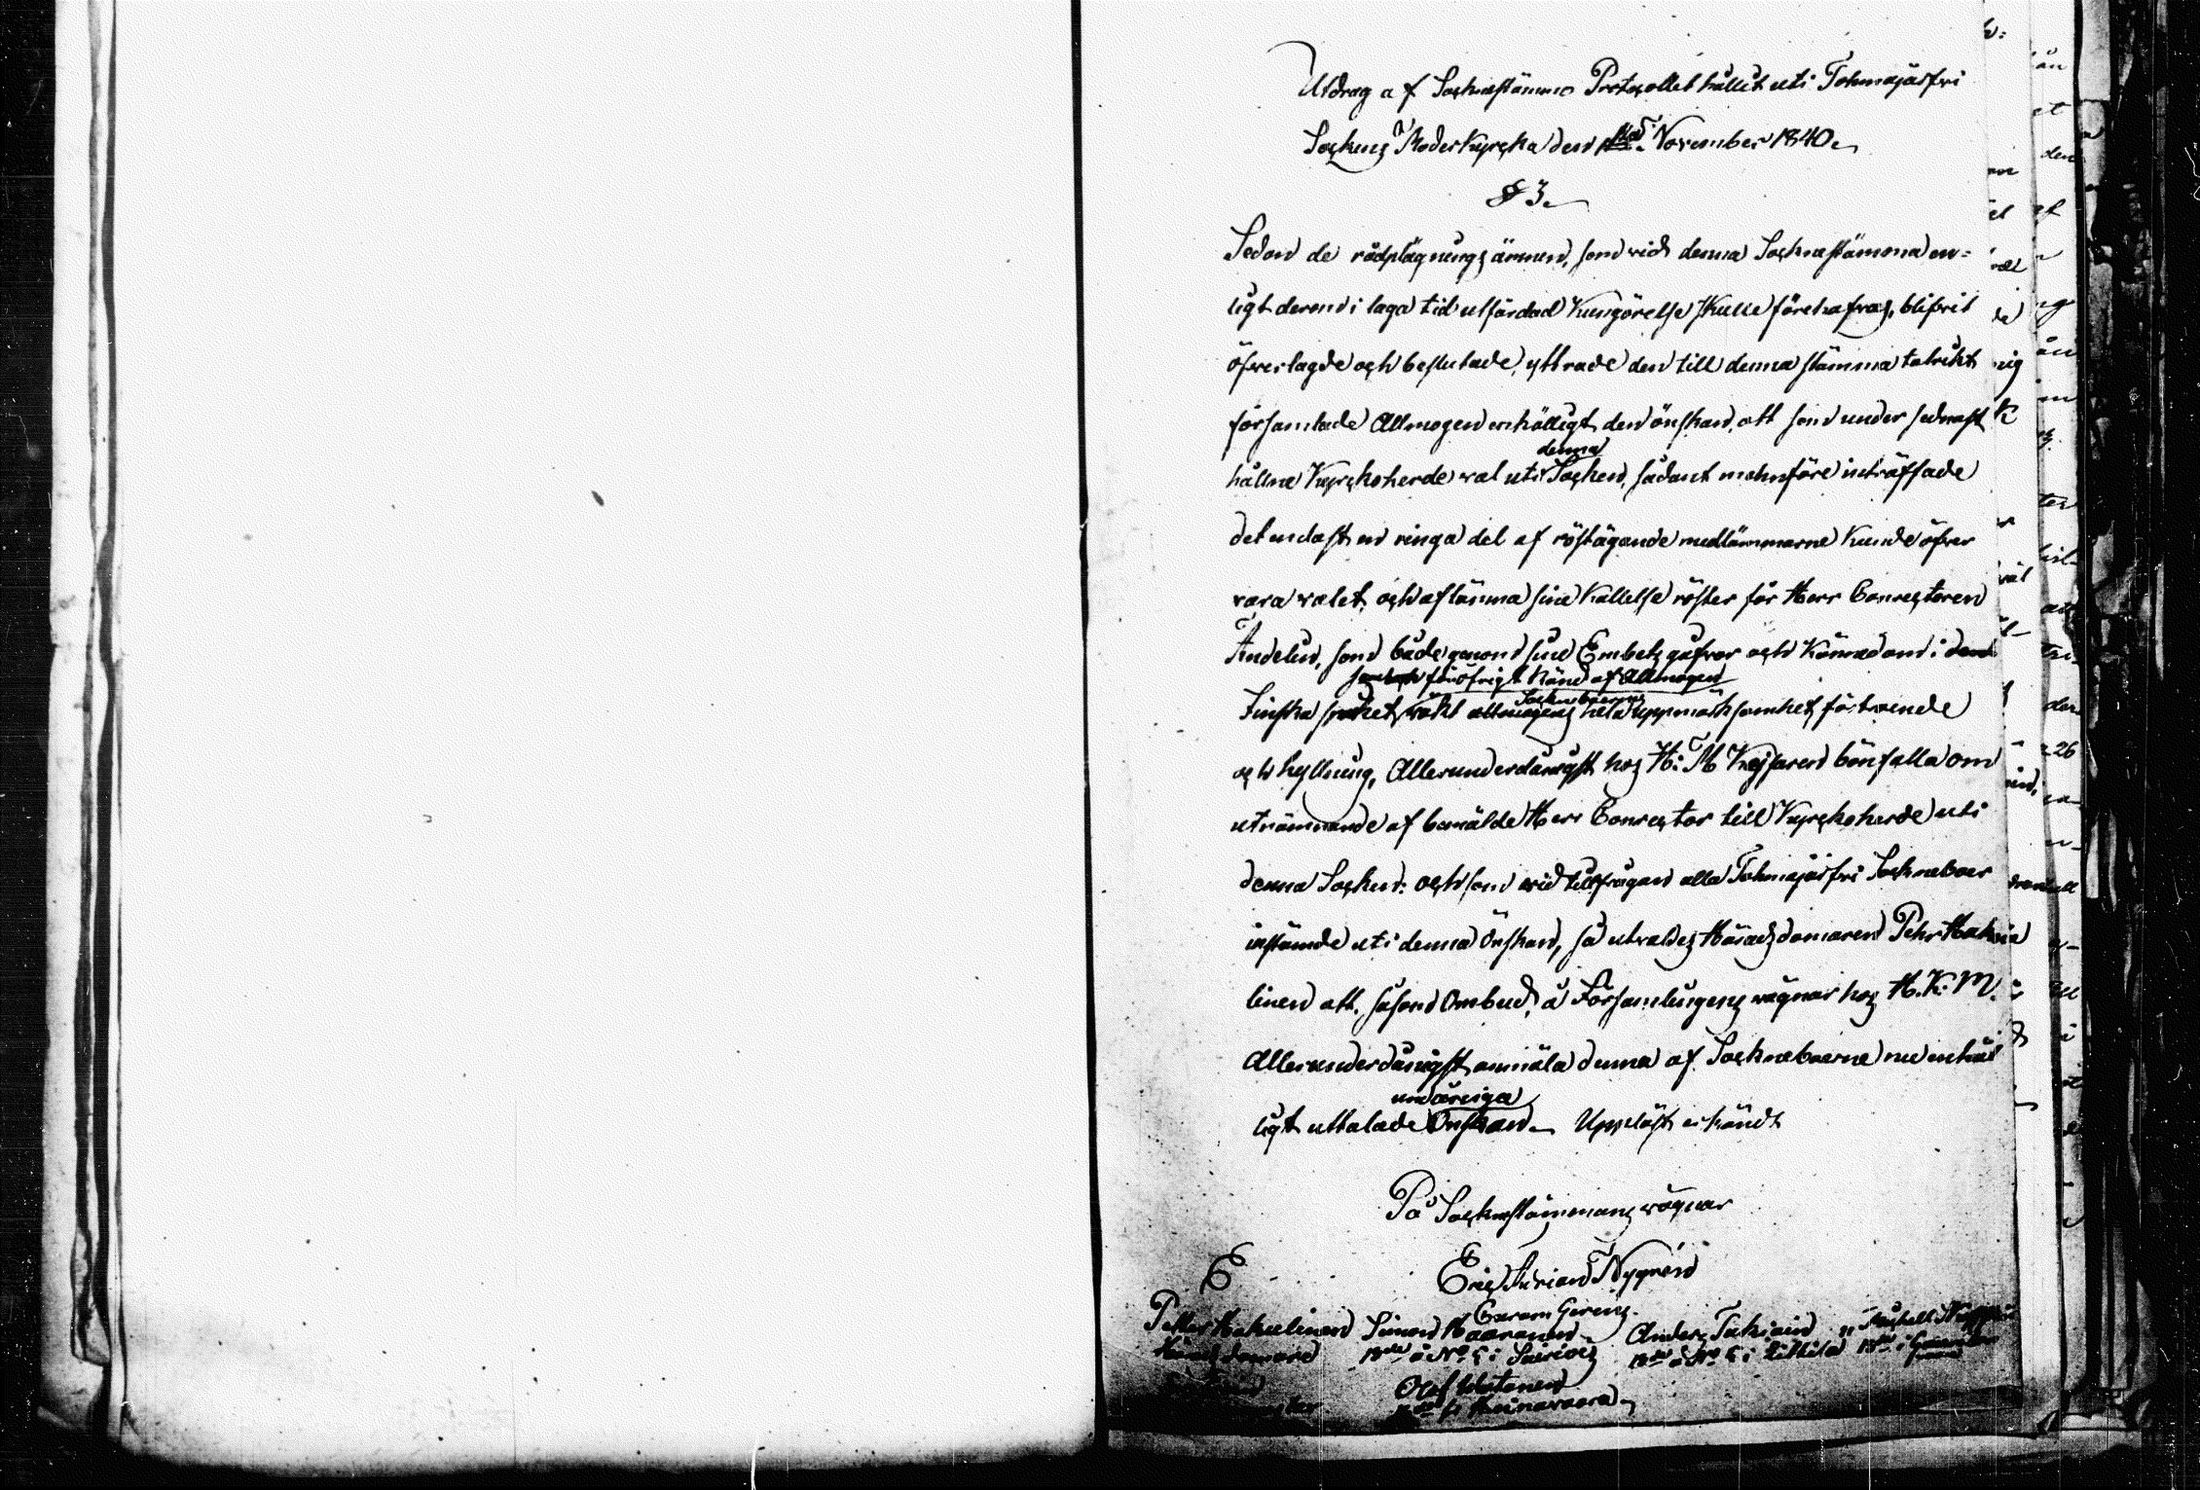 Utdrag af Socknestämmo Protocollet hållet uti Tohmajärfvi
Sockens Moderkyrcka den 1sta November 1840.
§ 3.
Sedan de rådplägnings ämnen, som vid denna Socknestämma en-
ligt derom i laga tid utfärdad Kungörelse skulle företrafvas, blifvit
öfverlagde och beslutade, yttrade den till denna stämma talrikt
församlade Allmogen enhälligt den önskan, att som under sednast
denna
hållne Kyrckoherde val uti Socken, sådant menföre inträffade
det endast en ringa del af röstägande medlämmarne kunde öfver
vara valet och aflämna sine kallelse röster för Herr Conrectoren
Andelin, som både genom sine Embets gåfvor och Kännedom i den
föröfrigt känd af Allmogen
Sockneboernes
Finska språket, väkt allmogens hela uppmärksamhet, förtroende
och hyllning, Allerunderdånigst hos H: M Kejsaren bönfalla om
utnämnande af bemälde Herr Conrector till Kyrckoherde uti
denna Socken: och som vid tillfrågan alla Tohmajärfvi Sockneboer
instämde uti denna Önskan, så utvaldes Häradsdomaren Pehr Haku
linen att, såsom Ombud, å Församlingens vägnar hos H. K: M.
Allerunderdånigst anmäla denna af Sockneboerne nu enhäl
ligt uttalade Önskan. Uppläst erkändt
På Sockenstämmans vägnar
Eric Johan Nygrén
Petter Hakulinen Simon Haaranen Anders Tukiain
Häradsdomare
Olof